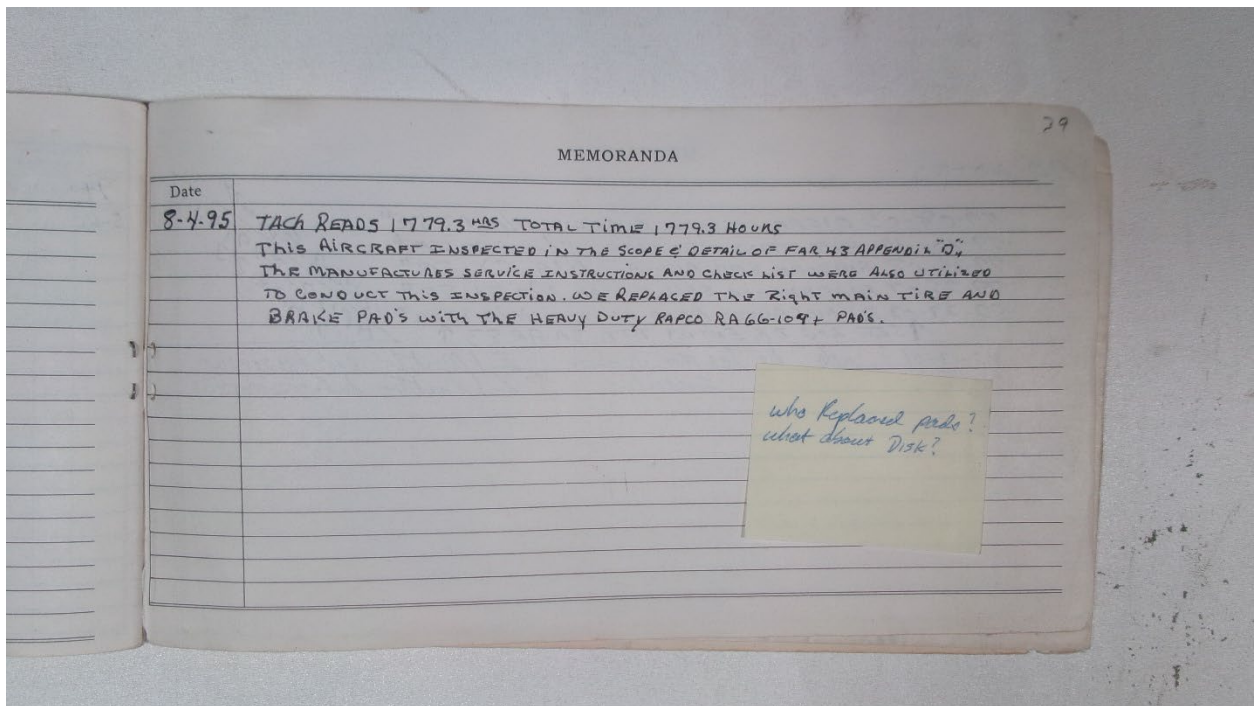 29
MEMORANDA
Date
8-4-95 TACH READS 1779.3 HRS TOTAL TIME 1779.3 HOURS
THIS AIRCRAFT INSPECTED IN THE SCOPE & DETAIL OF FAR 43 APPENDIX "D",
THE MANUFACTURES SERVICE INSTRUCTIONS AND CHECK LIST WERE ALSO UTILIZED
TO CONDUCT THIS INSPECTION. WE REPLACED THE RIGHT MAIN TIRE AND
BRAKE PAD'S WITH THE HEAVY DUTY RAPCO PAD'S.
who Replaced pads?
what about Disk?